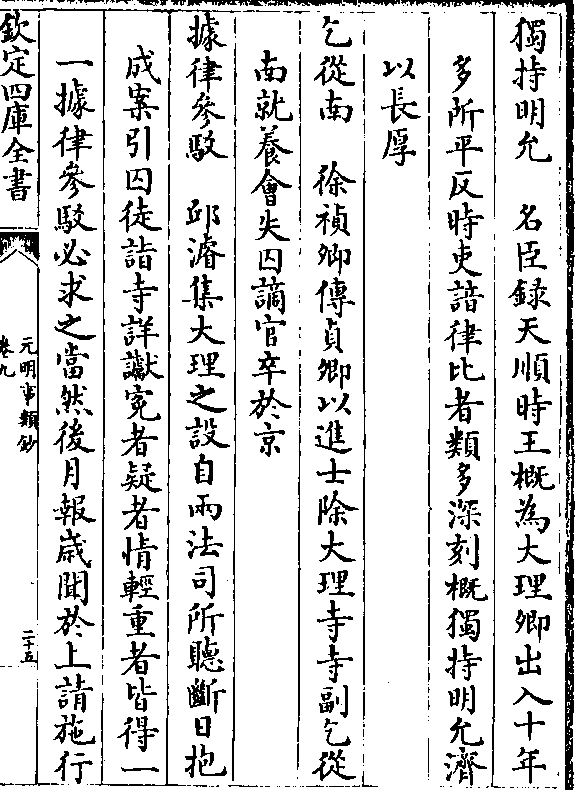 獨持明允　名臣錄天順時王概為大理卿出入十年
多所平反時吏諳律比者類多深刻概獨持明允濟
以長厚
乞從南　徐禎卿傳貞卿以進士除大理寺寺副乞從
南就養會失囚謫官卒於京
據律參駁　邱濬集大理之設自兩法司所聽斷日抱
成案引囚徒詣寺詳讞寃者疑者情輕重者皆得一
一據律參駁必求之當然後月報歲聞於上請施行
欽定四庫全書
元明事類鈔
卷九
二十五